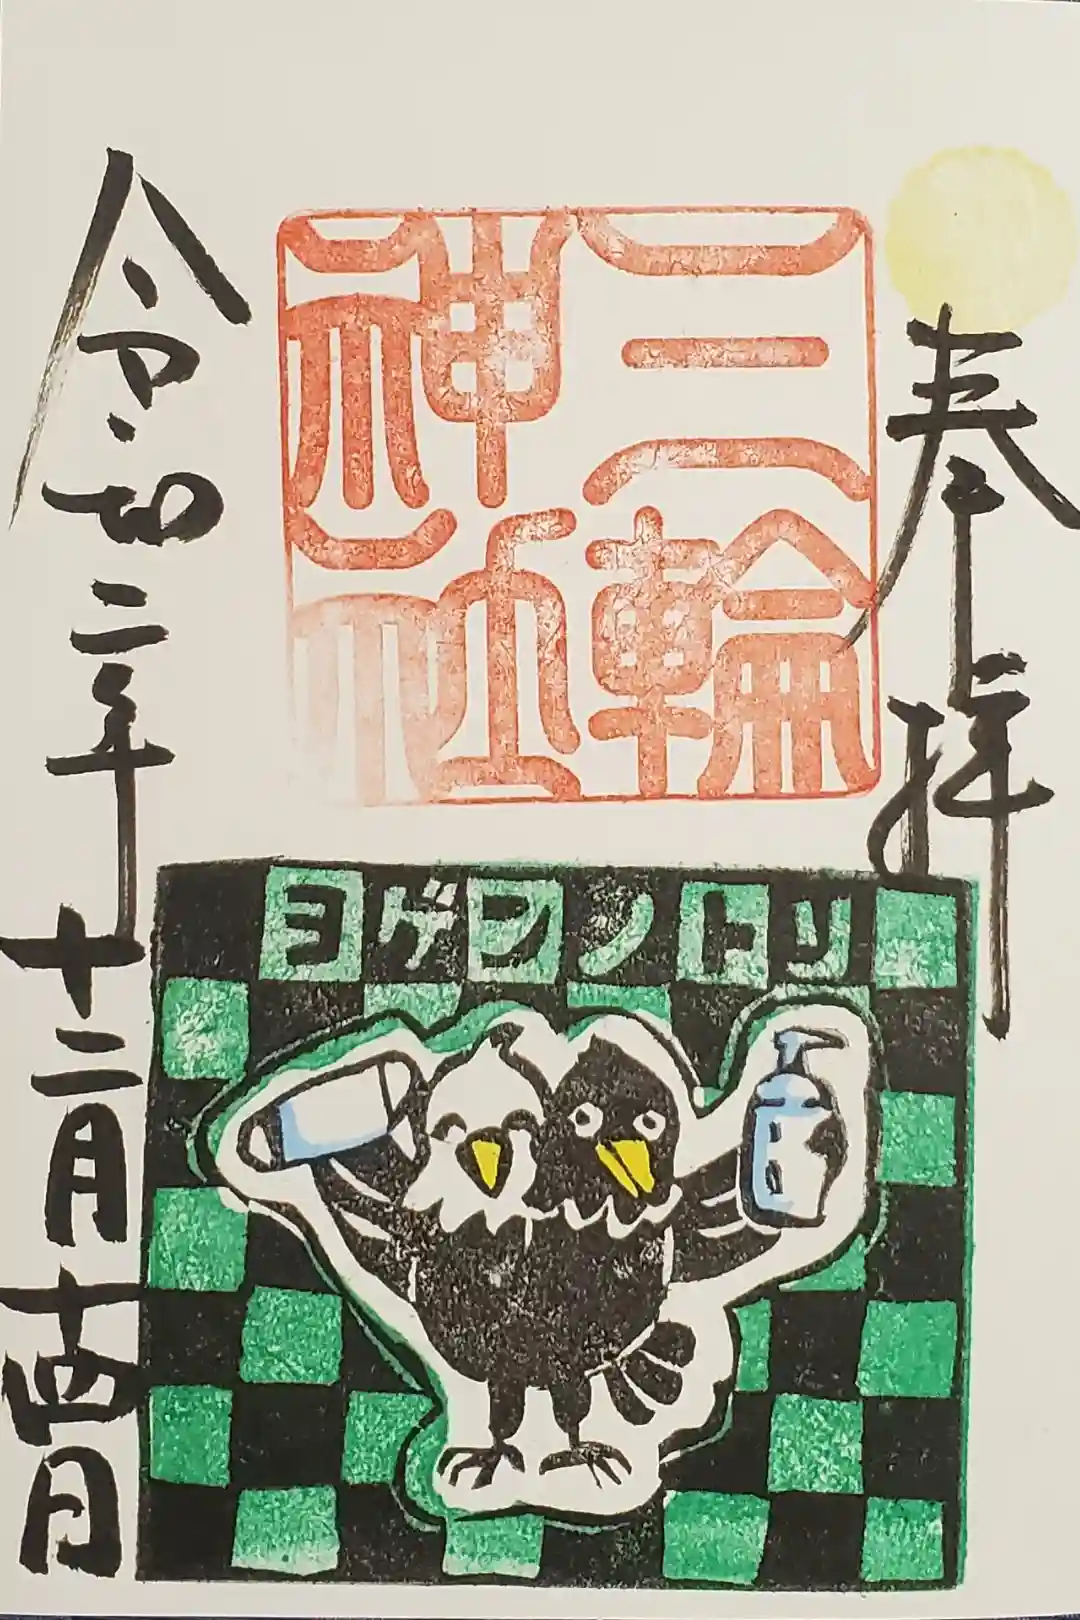 奉拝
三輪
神社
令和二年十二月十四日
ヨゲンノトリ